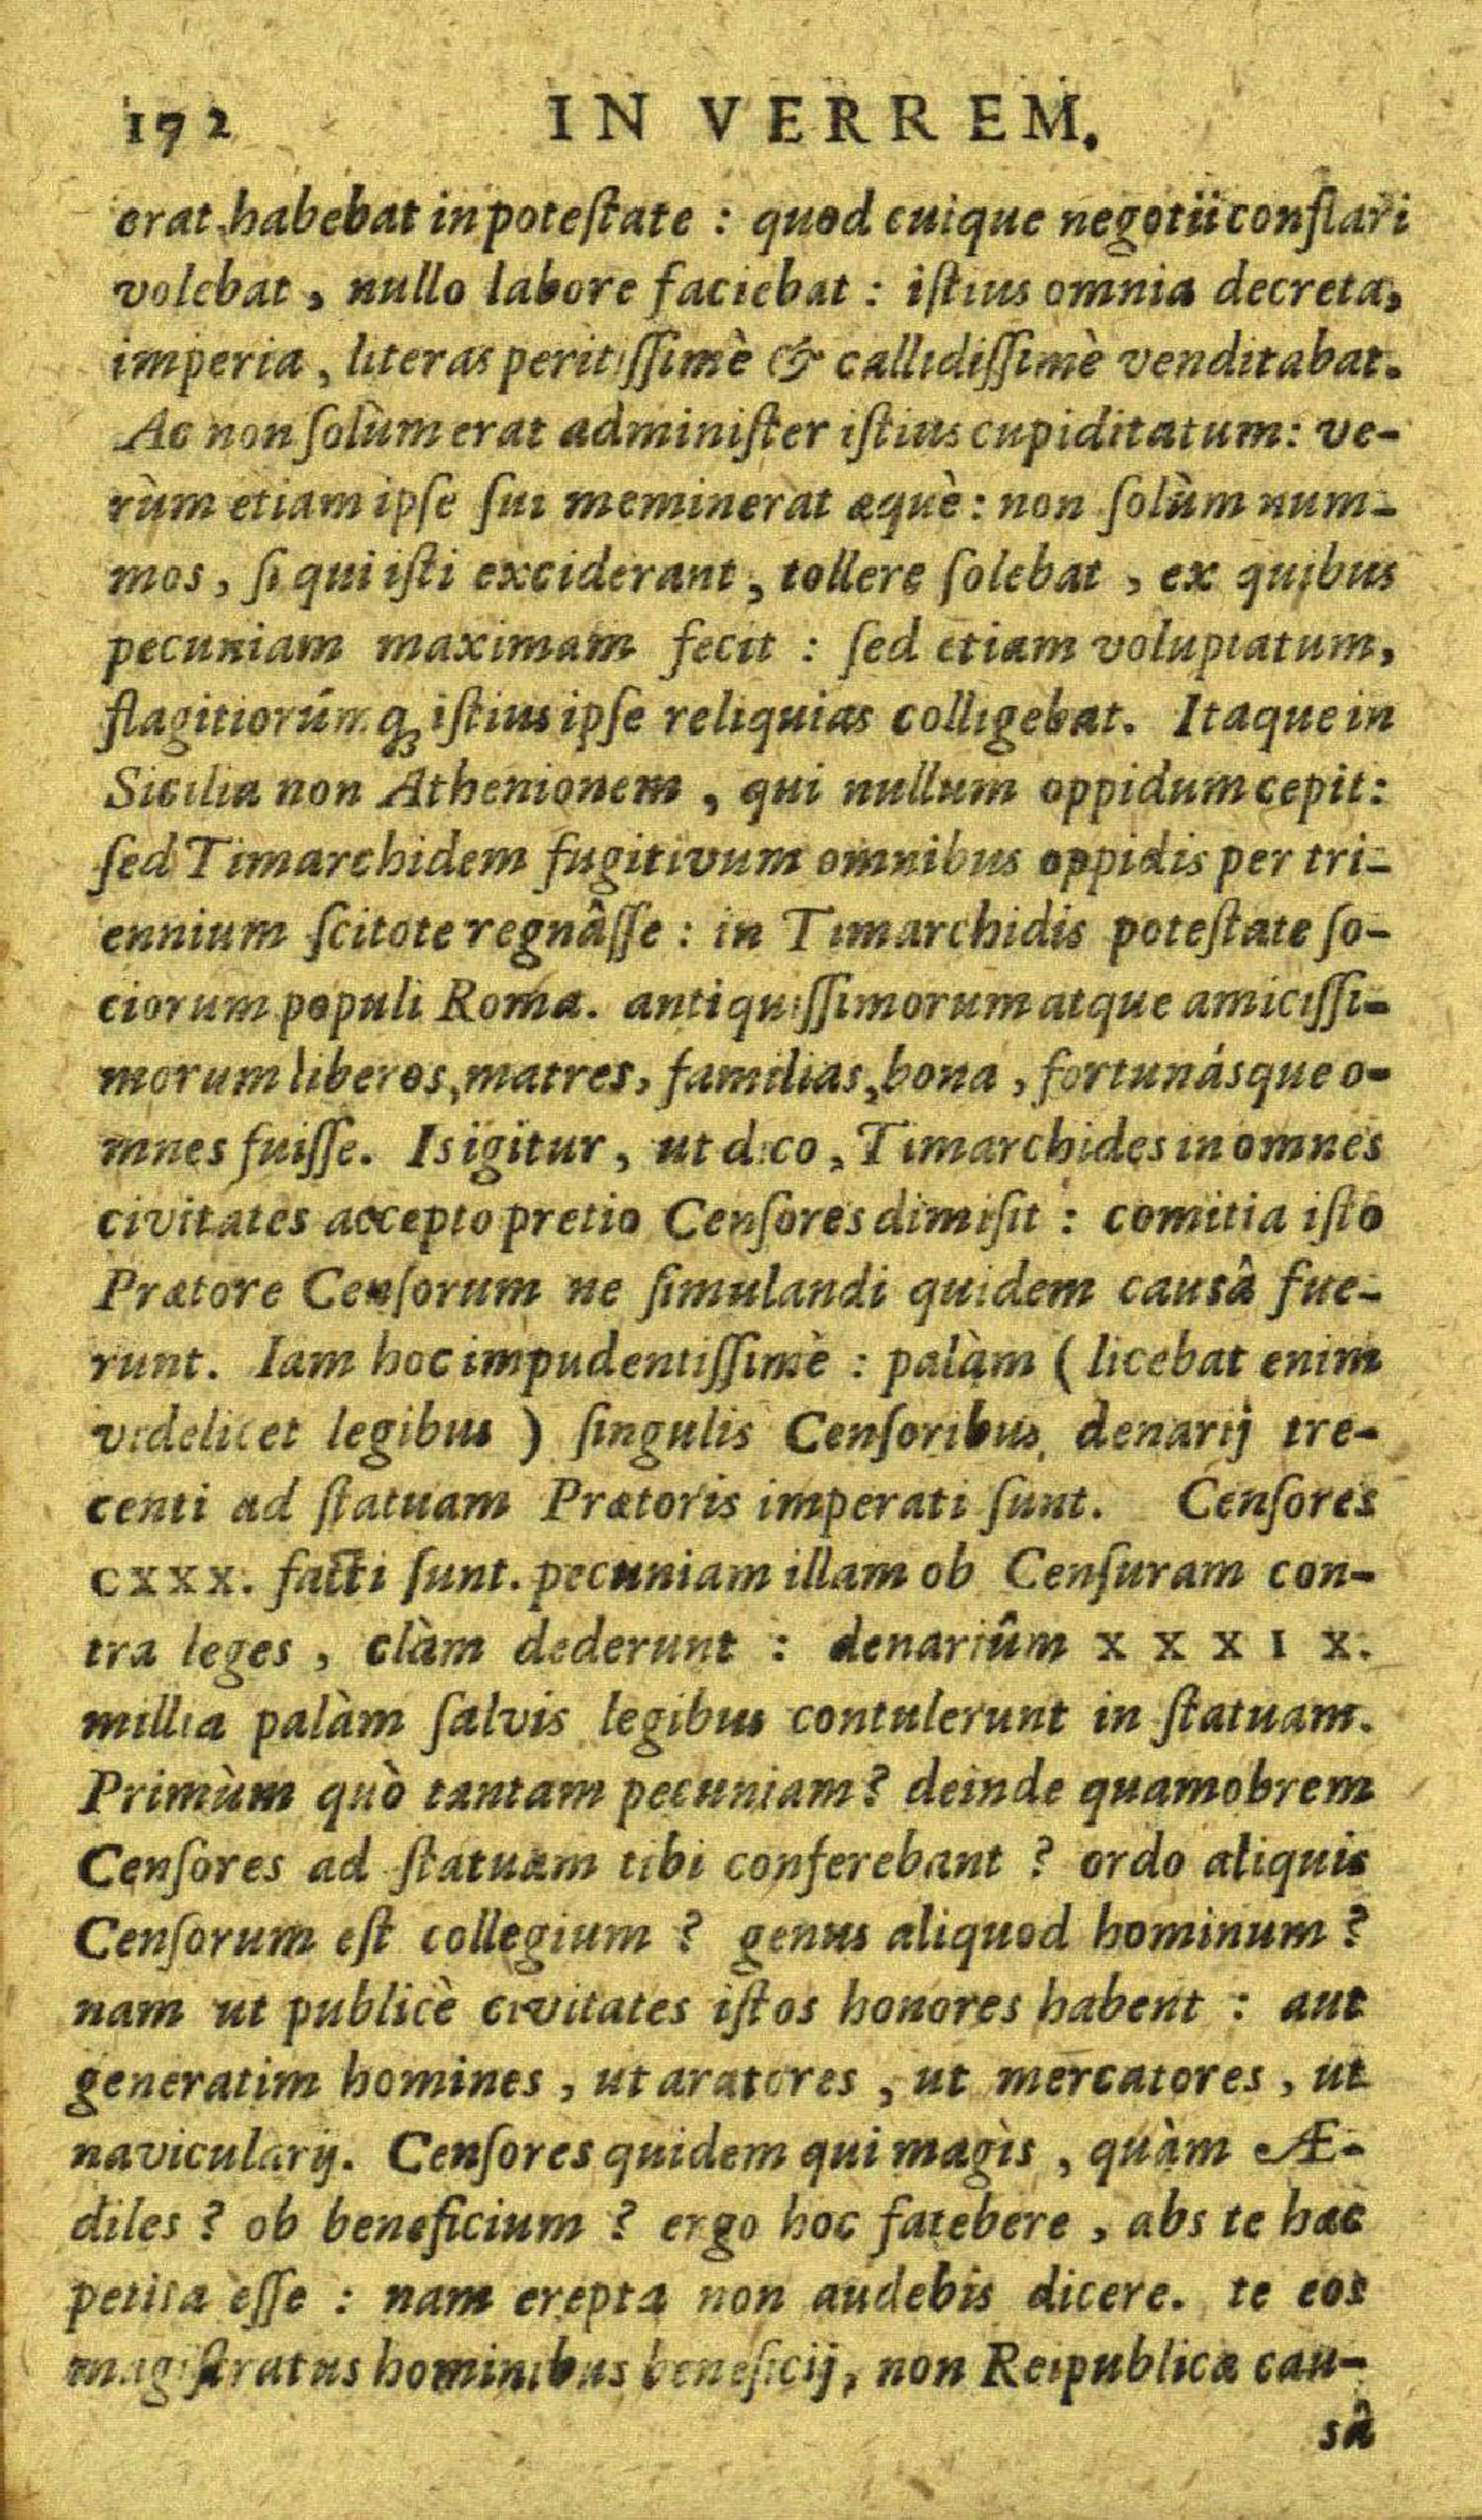 172 IN VERREM.
erat, habebat in poteſtate : quod cuique negotii conflari
volebat, nullo labore faciebat : iſtius omnia decreta,
imperia, literas peritiſſimè & callidiſſimè venditabat.
Ac non ſolùm erat adminiſter iſtius cupiditatum: ve-
rùm etiam ipſe ſui meminerat æquè: non ſolùm num-
mos, ſi qui iſti exciderant, tollere ſolebat, ex quibus
pecuniam maximam fecit : ſed etiam voluptatum,
flagitiorúmq; iſtius ipſe reliquias colligebat. Itaque in
Sicilia non Athenionem, qui nullum oppidum cepit:
ſed Timarchidem fugitivum omnibus oppidis per tri-
ennium ſcitote regnâſſe : in Timarchidis poteſtate ſo-
ciorum populi Roma. antiquiſſimorum atque amiciſſi-
morum liberos, matres, familias, bona, fortunásque o-
mnes fuiſſe. Is igitur, ut dico, Timarchides in omnes
civitates accepto pretio Cenſores dimiſit : comitia iſto
Prætore Cenſorum ne ſimulandi quidem causâ fue-
runt. Iam hoc impudentiſſimè : palàm ( licebat enim
videlicet legibus ) ſingulis Cenſoribus denarij tre-
centi ad ſtatuam Prætoris imperati ſunt. Cenſores
CXXX. facti ſunt. pecuniam illam ob Cenſuram con-
tra leges, clàm dederunt : denariûm X X X I X.
millia palàm ſalvis legibus contulerunt in ſtatuam.
Primùm quò tantam pecuniam? deinde quamobrem
Cenſores ad ſtatuam tibi conferebant ? ordo aliquis
Cenſorum eſt collegium ? genus aliquod hominum ?
nam ut publicè civitates iſtos honores habent : aut
generatim homines, ut aratores, ut mercatores, ut
navicularij. Cenſores quidem qui magìs, quàm Æ-
diles ? ob beneficium ? ergo hoc fatebere, abs te hæc
petita eſſe : nam erepta non audebis dicere. te eos
magiſtratus hominibus beneficij, non Reipublicæ cau-
sâ